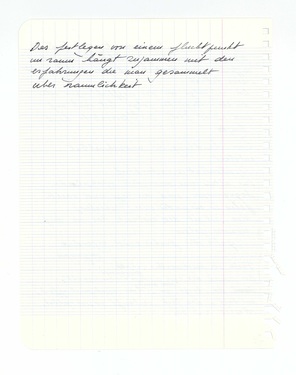 Das festlegen von einem fluchtpunkt
im raum hängt zusammen mit den
erfahrungen die man gesammelt
über räumlichkeit